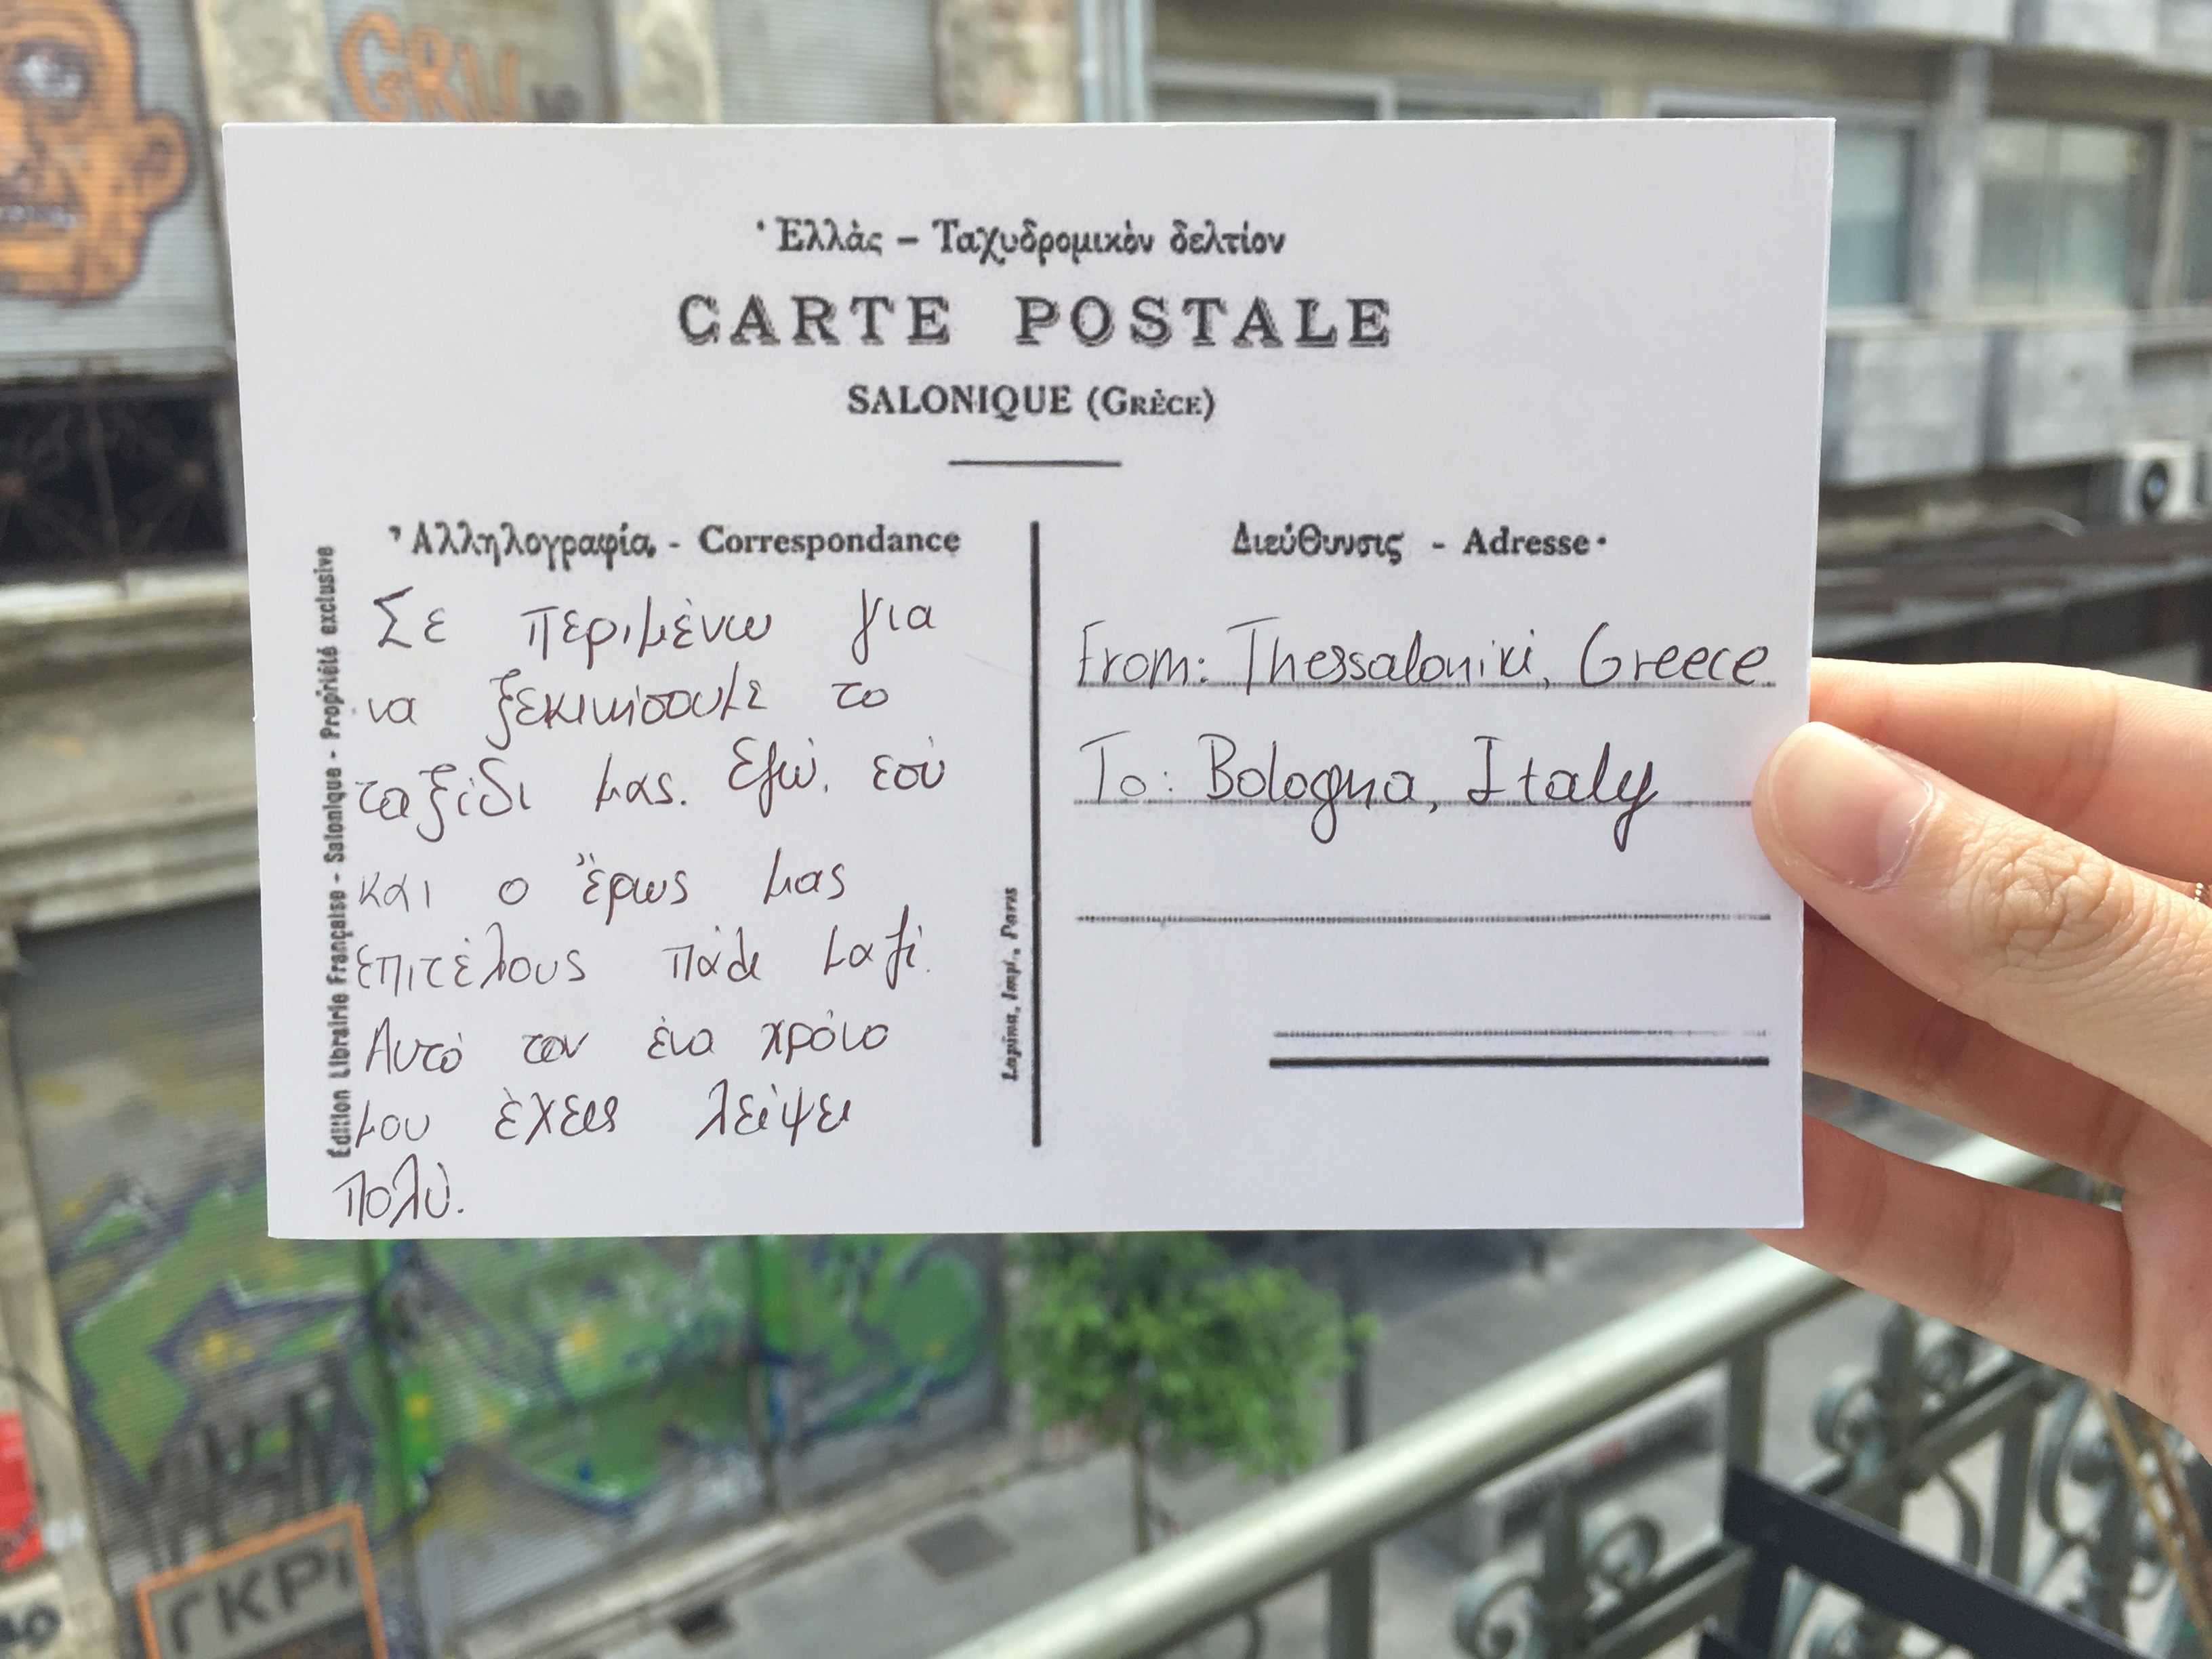 GRU
Ἑλλὰς – Ταχυδρομικὸν δελτίον
CARTE POSTALE
SALONIQUE (GRÈCE)
Ἀλληλογραφία - Correspondance
Σε περιμένω για
να ξεκινήσουμε το
ταξίδι μας. Εγώ, εσύ
και ο "έρως μας
επιτέλους πάλι μαζί.
Αυτό τον ένα χρόνο
μου έχεις λείψει
πολύ.
Édition Librairie Française - Salonique - Propriété exclusive
Lapina, Imp., Paris
Διεύθυνσις - Adresse
From: Thessaloniki, Greece
To: Bologna, Italy
ΓΚΡΙ